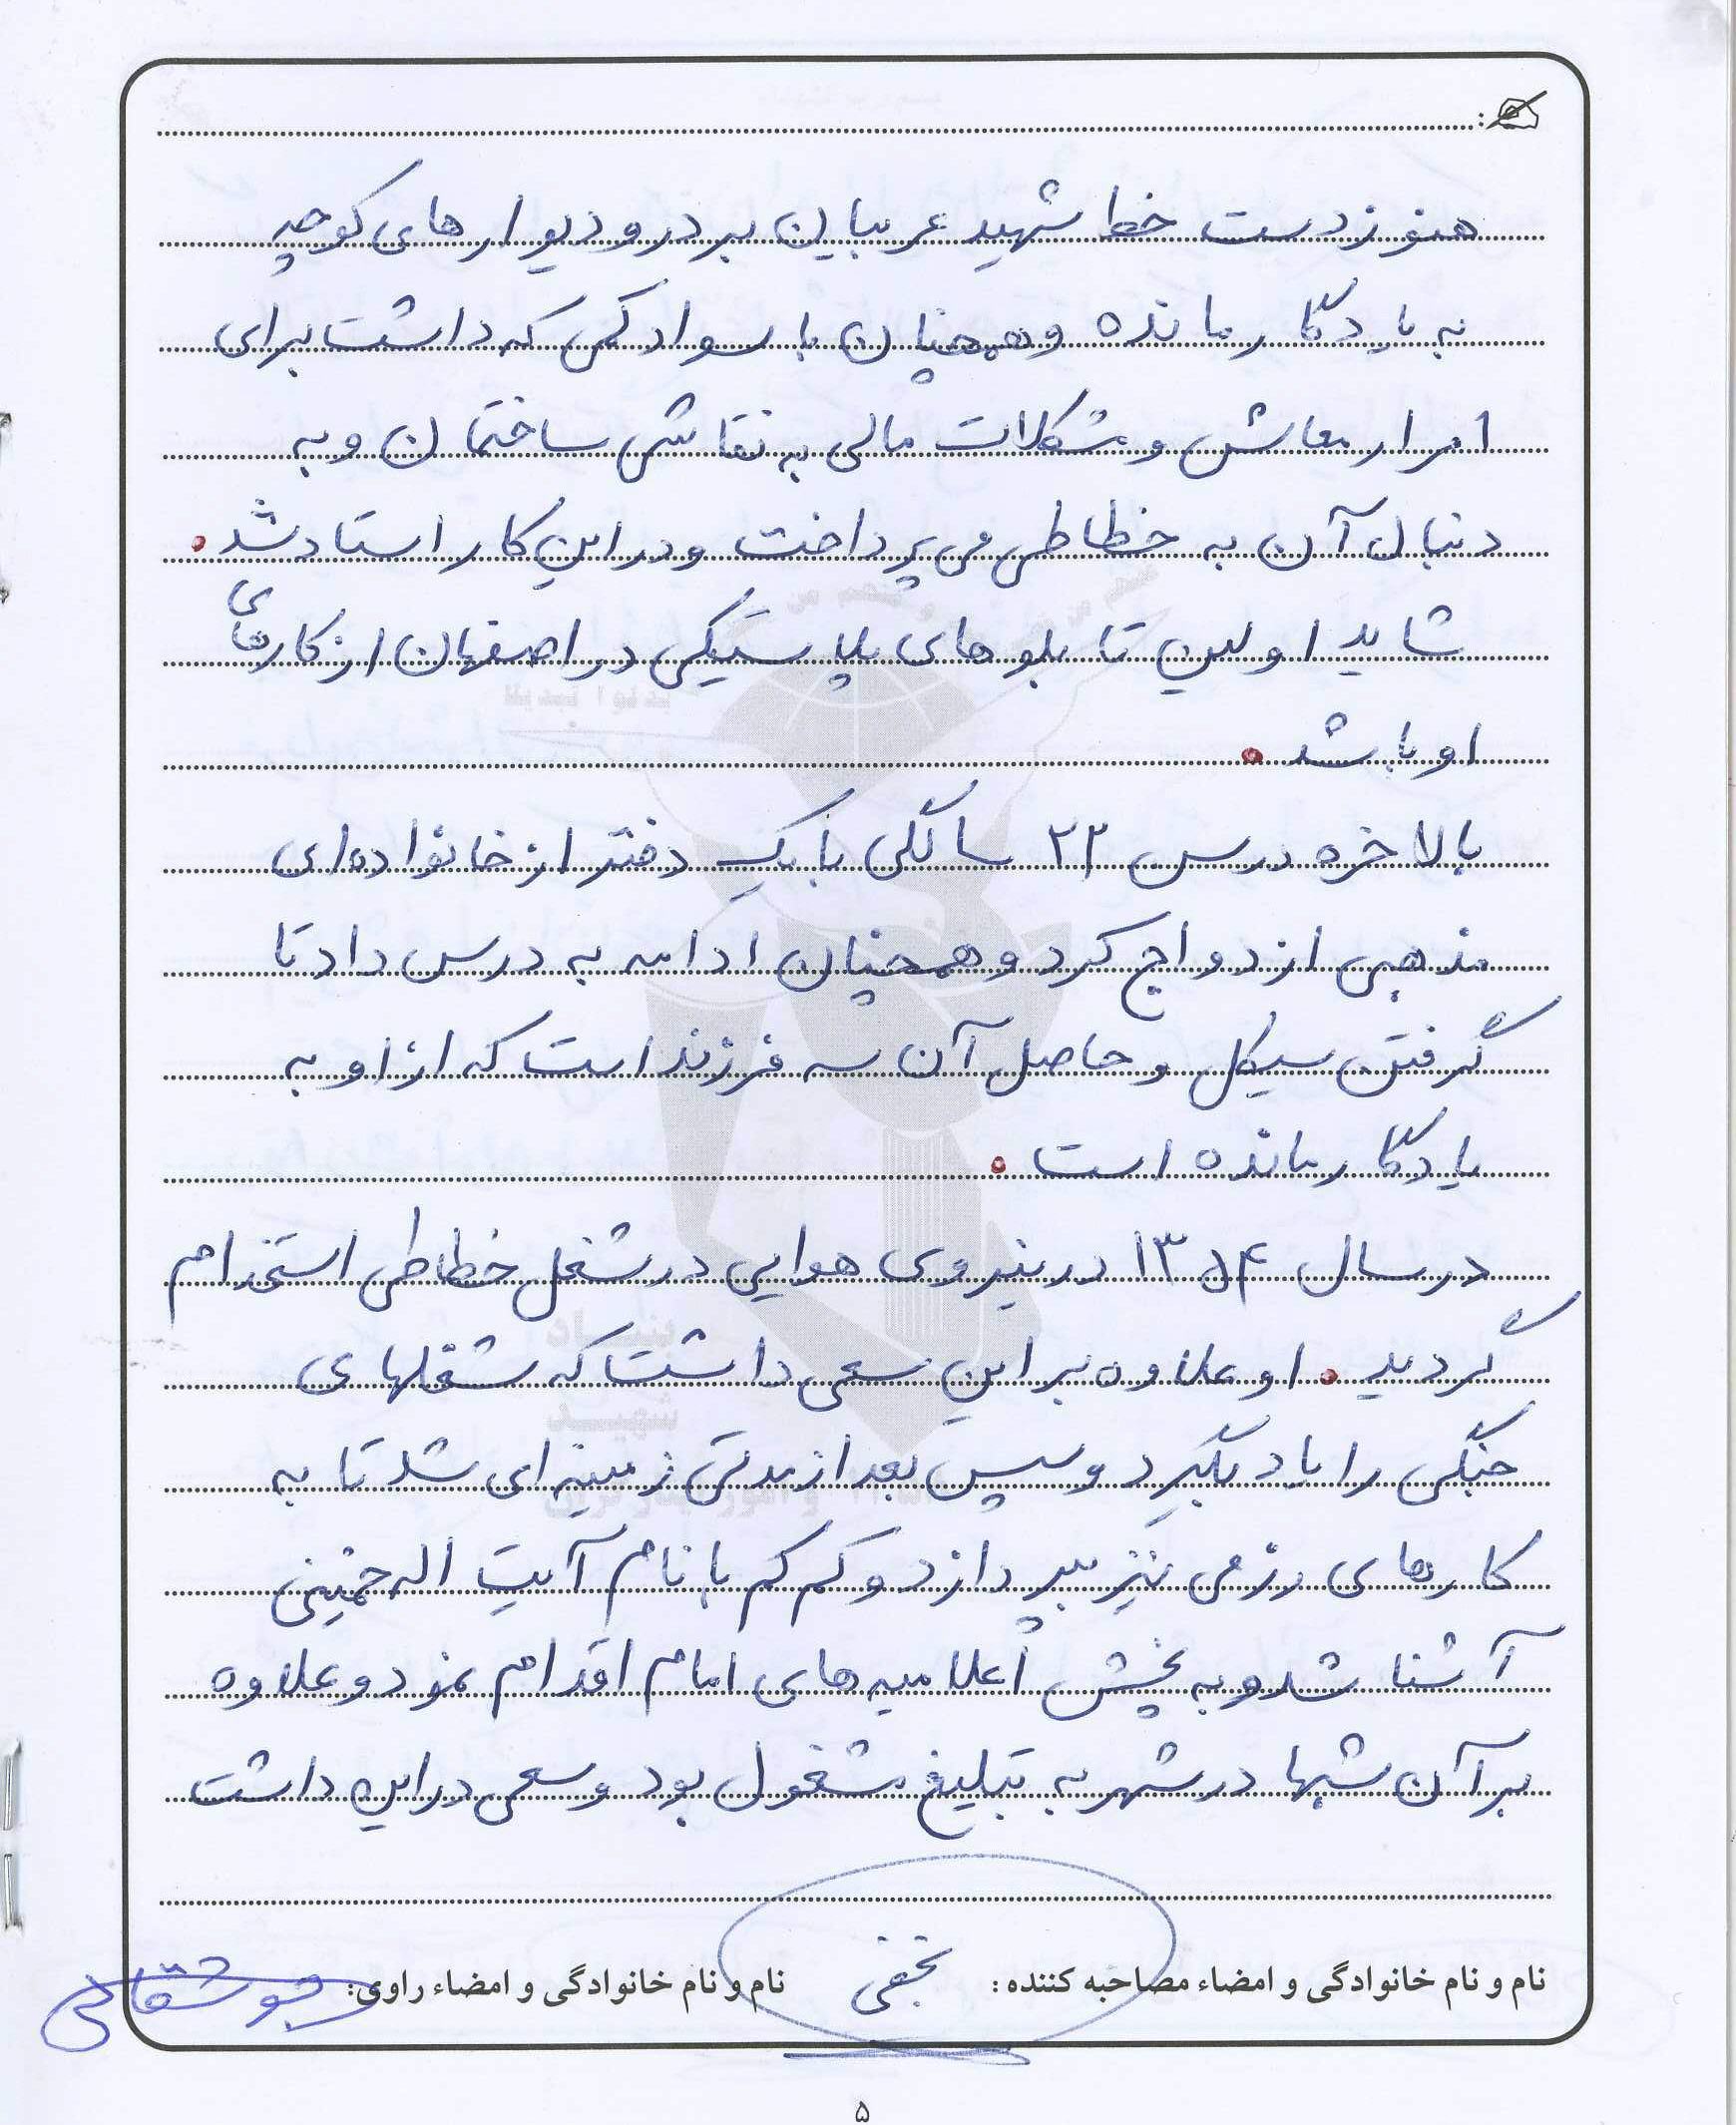 هنوز دست خط شهید عریبان بر در و دیوارهای کوچه
به یادگار مانده و همچنان با سواد کمی که داشت برای
امرار معاش و مشکلات مالی به نقاشی ساختمان و به
دنبال آن به خطاطی می پرداخت و در این کار استاد شد.
شاید اولین تابلوهای پلاستیکی در اصفهان از کارهای
او باشد.
بالاخره در سن ۲۳ سالگی با یک دختر از خانواده‌ای
مذهبی ازدواج کرد و همچنان ادامه به درس داد تا
گرفتن سیکل و حاصل آن سه فرزند است که از او به
یادگار مانده است.
در سال ۱۳۵۴ در نیروی هوایی در شغل خطاطی استخدام
گردید. او علاوه بر این سعی داشت که شغلهای
جنگی را یاد بگیرد و سپس بعد از مدتی زمینه‌ای شد تا به
کارهای رزمی نیز بپردازد و کم کم با نام آیت اله خمینی
آشنا شد و به پخش اعلامیه های امام اقدام نمود و علاوه
بر آن شبها در شهر به تبلیغ مشغول بود و سعی در این داشت
نام و نام خانوادگی و امضاء مصاحبه کننده: نجفی نام و نام خانوادگی و امضاء راوی:
۵